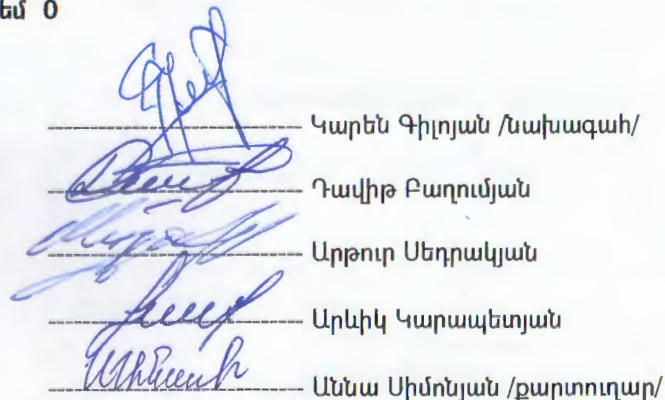 եմ 0
Կարեն Գիլոյան /նախագահ/
Դավիթ Բաղումյան
Արթուր Սեդրակյան
Արևիկ Կարապետյան
Աննա Սիմոնյան /քարտուղար/